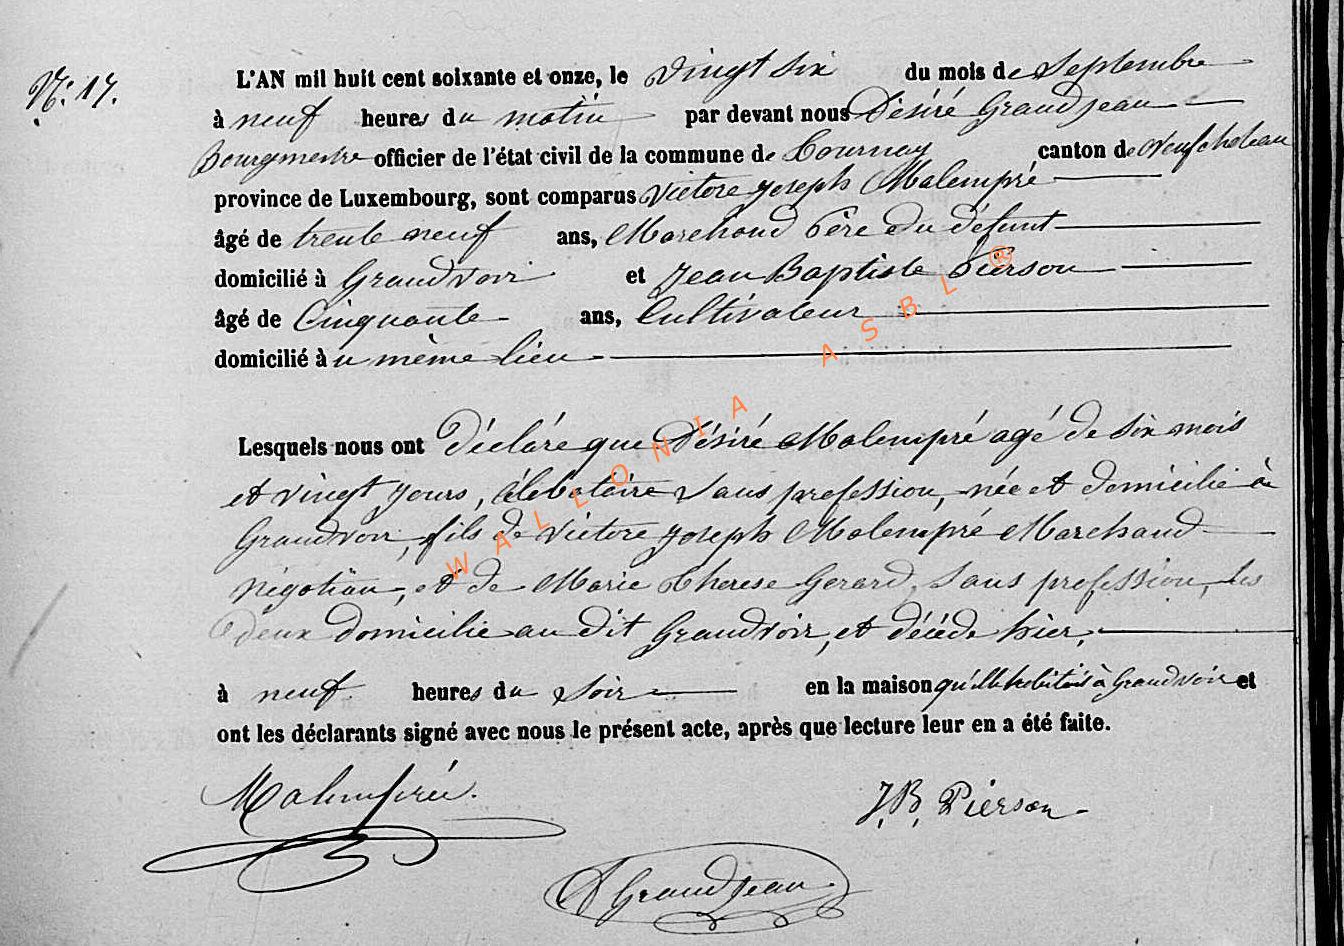 N.° 17.
L'AN mil huit cent soixante et onze, le vingt six du mois de Septembre
à neuf heures du matin par devant nous Désiré Grandjean
Bourgmestre officier de l'état civil de la commune de Tournay canton de Neufchateau
province de Luxembourg, sont comparus Victore Joseph Malempré
âgé de trente neuf ans, Marchand Père du défunt
domicilié à Grandvoir et Jean Baptiste Pierson
âgé de Cinquante ans, Cultivateur
domicilié au même lieu
Lesquels nous ont Déclaré que Désiré Malempré agé de six mois
et vingt jours, Célebataire sans profession, née et domicilié à
Grandvoir, fils de Victore Joseph Malempré Marchand
négotian, et de Marie Therese Gerard, sans profession, les
deux domicilié au dit Grandvoir, et décédé hier,
à neuf heures du soir en la maison qu'elle habitait à Grandvoir et
ont les déclarants signé avec nous le présent acte, après que lecture leur en a été faite.
Malempré.
J. B. Pierson
D Grandjean
WALLONIA ASBL ®